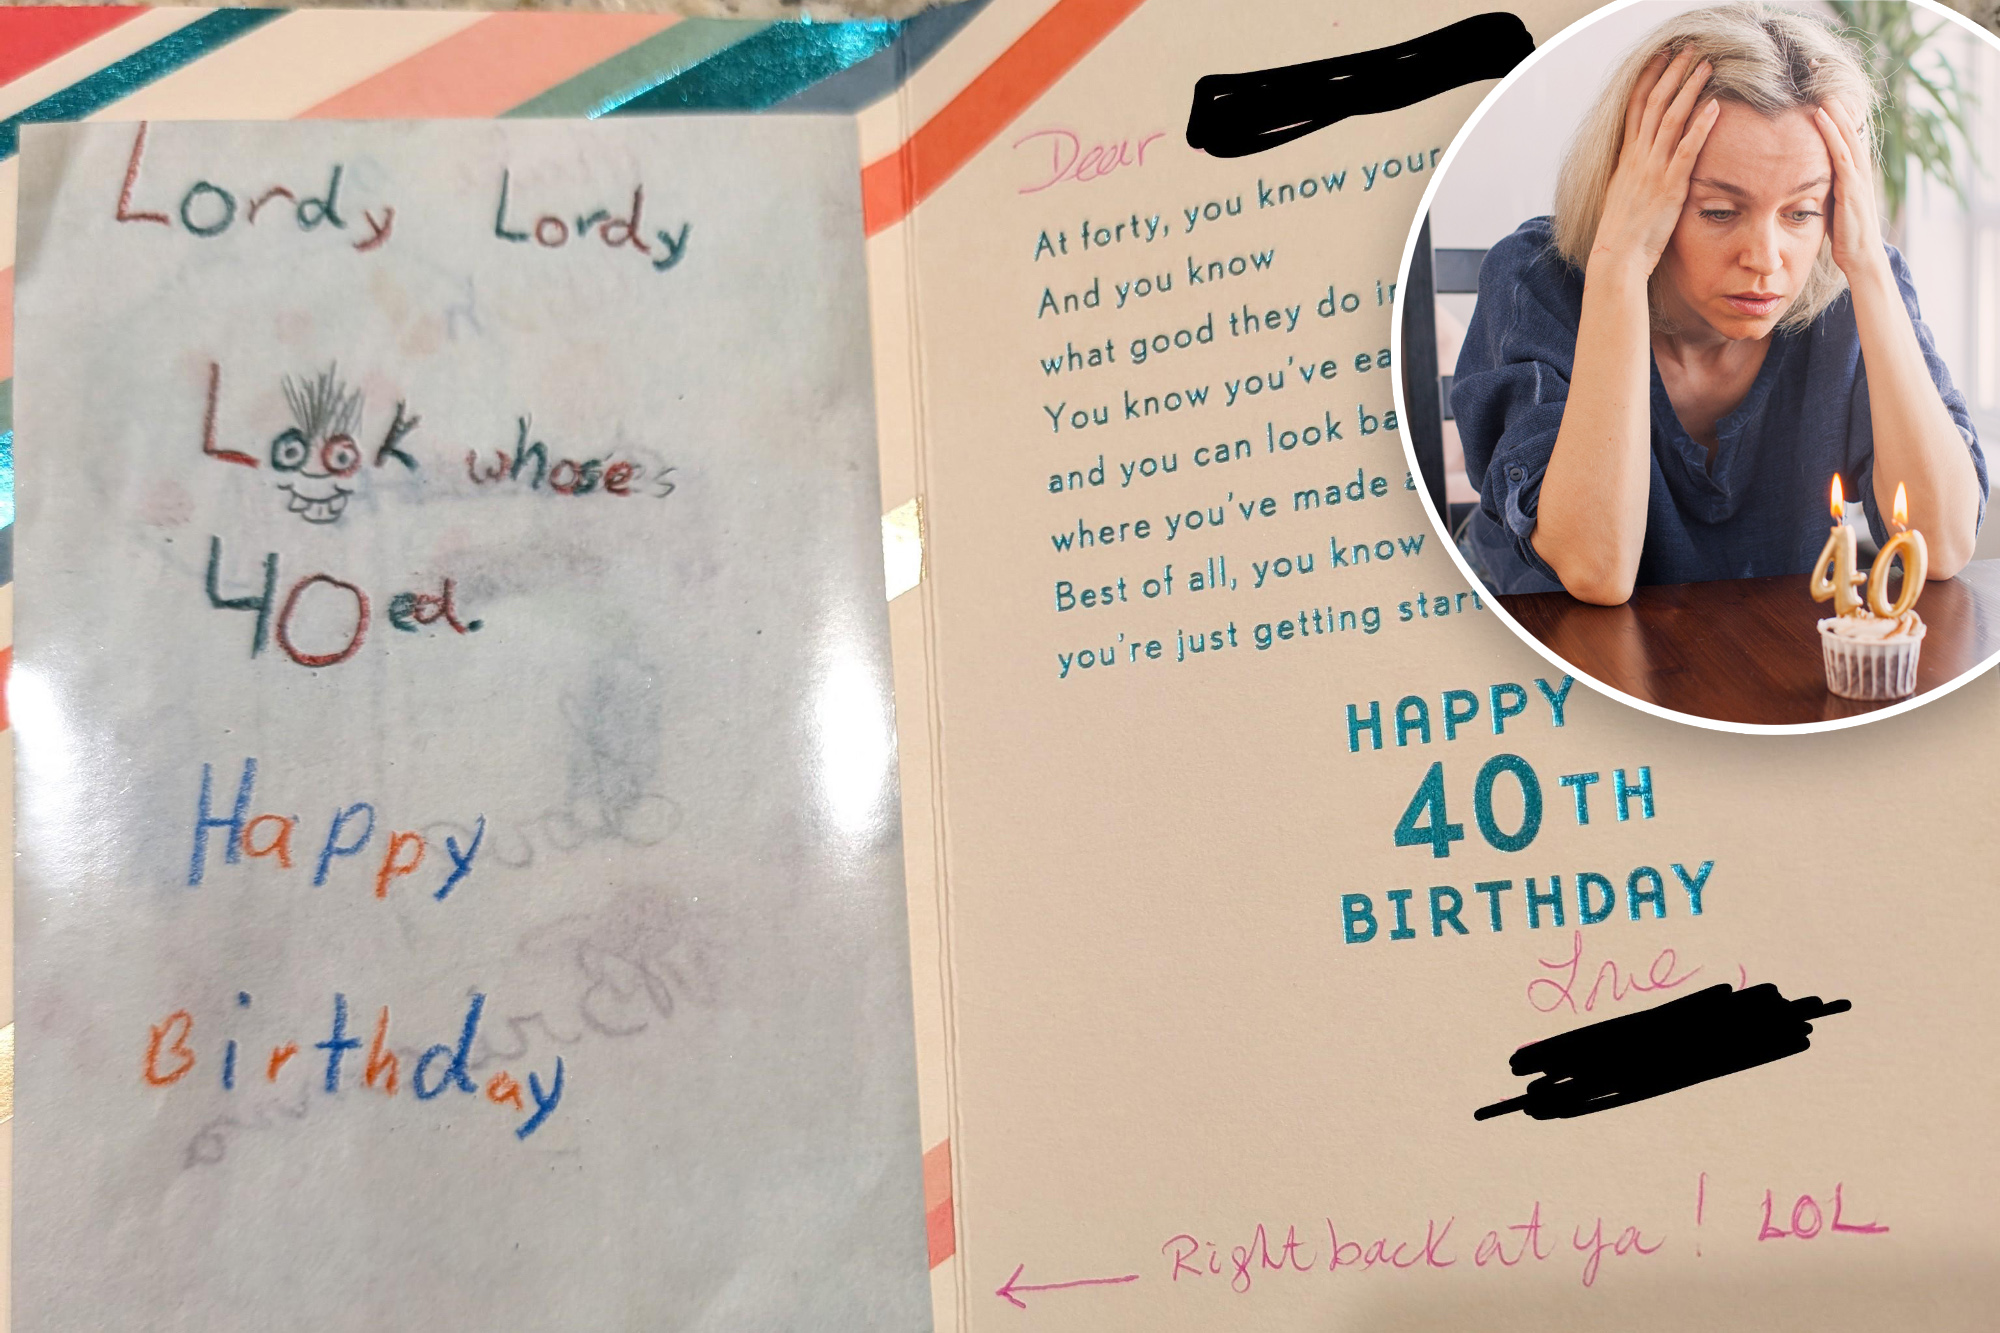 Lordy Lordy
Look whose's
40ed.
Happy
Birthday
Dear
At forty, you know your
And you know
what good they do
You know you've
and you can look
where you've made
Best of all, you know
you're just getting
HAPPY
40TH
BIRTHDAY
Love,
← Right back at ya! LOL
40